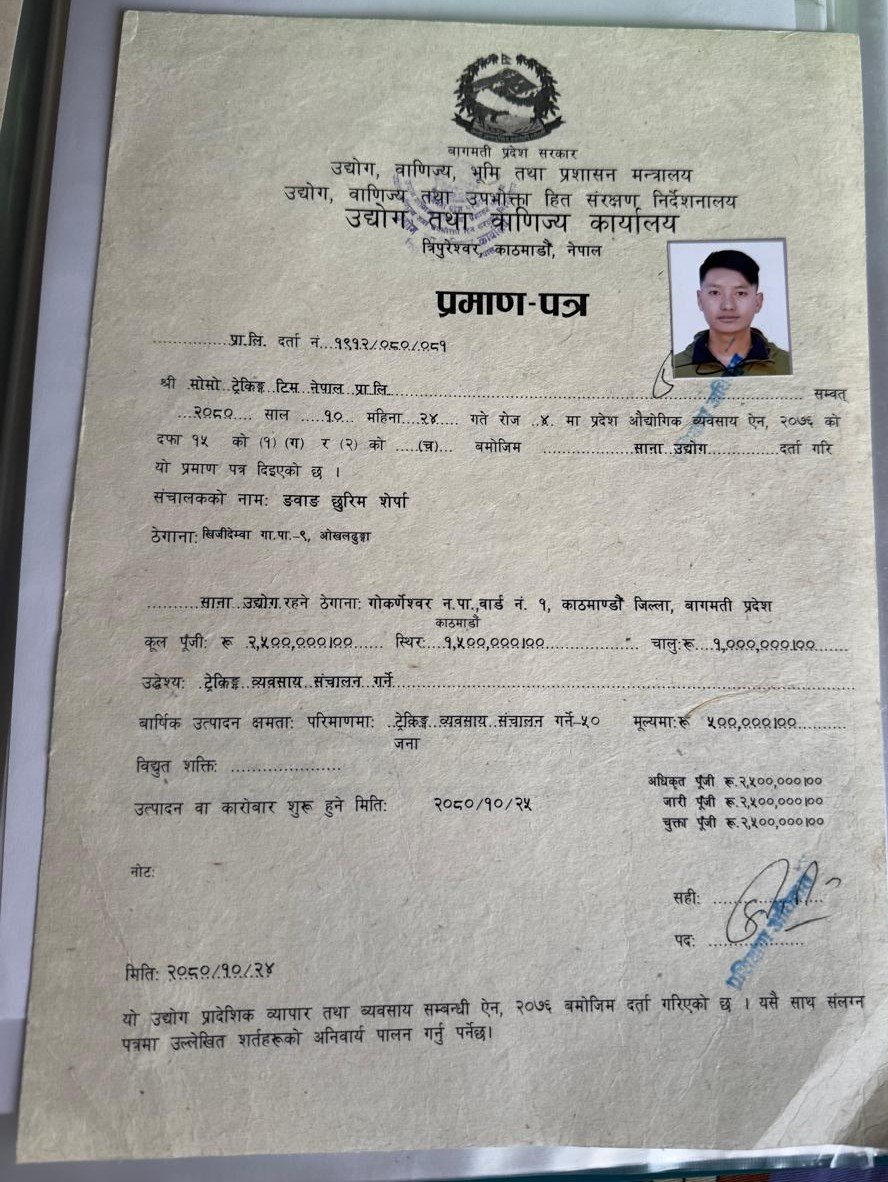 बागमती प्रदेश सरकार
उद्योग, वाणिज्य, भूमि तथा प्रशासन मन्त्रालय
उद्योग, वाणिज्य तथा उपभोक्ता हित संरक्षण निर्देशनालय
उद्योग तथा वाणिज्य कार्यालय
त्रिपुरेश्वर, काठमाडौं, नेपाल
प्रमाण-पत्र
..............प्रा.लि. दर्ता नं...१९१२/०८०/०८१
श्री मोमो ट्रेकिङ्ग टिम नेपाल प्रा लि.................... सम्वत्
...२०८०.... साल ....१०... महिना....२४..... गते रोज ..४. मा प्रदेश औद्योगिक व्यवसाय ऐन, २०७६ को
दफा १५ को (१) (ग) र (२) को .....(च)... बमोजिम ..................साना उद्योग..............दर्ता गरि
यो प्रमाण पत्र दिइएको छ ।
संचालकको नाम: ङवाङ छुरिम शेर्पा
ठेगाना: खिजीदेम्वा गा.पा.-९, ओखलढुङ्गा
..........साना उद्योग.रहने ठेगाना: गोकर्णेश्वर न.पा.,वार्ड नं. १, काठमाण्डौं जिल्ला, बागमती प्रदेश
काठमाडौं
कूल पूँजी: रू २,५००,०००।००...... स्थिर:...१,५००,०००।००.................. चालु:रू....१,०००,०००।००......
उद्देश्य: .ट्रेकिङ्ग व्यवसाय संचालन गर्ने....................
बार्षिक उत्पादन क्षमता: परिमाणमा: ..ट्रेकिङ्ग व्यवसाय संचालन गर्ने-५० मूल्यमा:रू ५००,०००।००.........
जना
विद्युत शक्ति: .....................
अधिकृत पूँजी रू.२,५००,०००।००
जारी पूँजी रू.२,५००,०००।००
चुक्ता पूँजी रू.२,५००,०००।००
उत्पादन वा कारोबार शुरू हुने मिति: २०८०/१०/२५
नोट:
सही: ....................
पद: ..................
मिति: २०८०/१०/२४
यो उद्योग प्रादेशिक व्यापार तथा व्यवसाय सम्बन्धी ऐन, २०७६ बमोजिम दर्ता गरिएको छ । यसै साथ संलग्न
पत्रमा उल्लेखित शर्तहरूको अनिवार्य पालन गर्नु पर्नेछ।